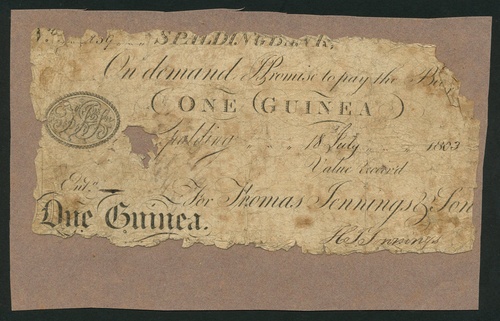 SPALDING BANK.
On demand I Promise to pay the Bearer
ONE GUINEA
Spalding 18 July 1803
Value received
Ent.d
For Thomas Jennings & Son
One Guinea.
H Jennings